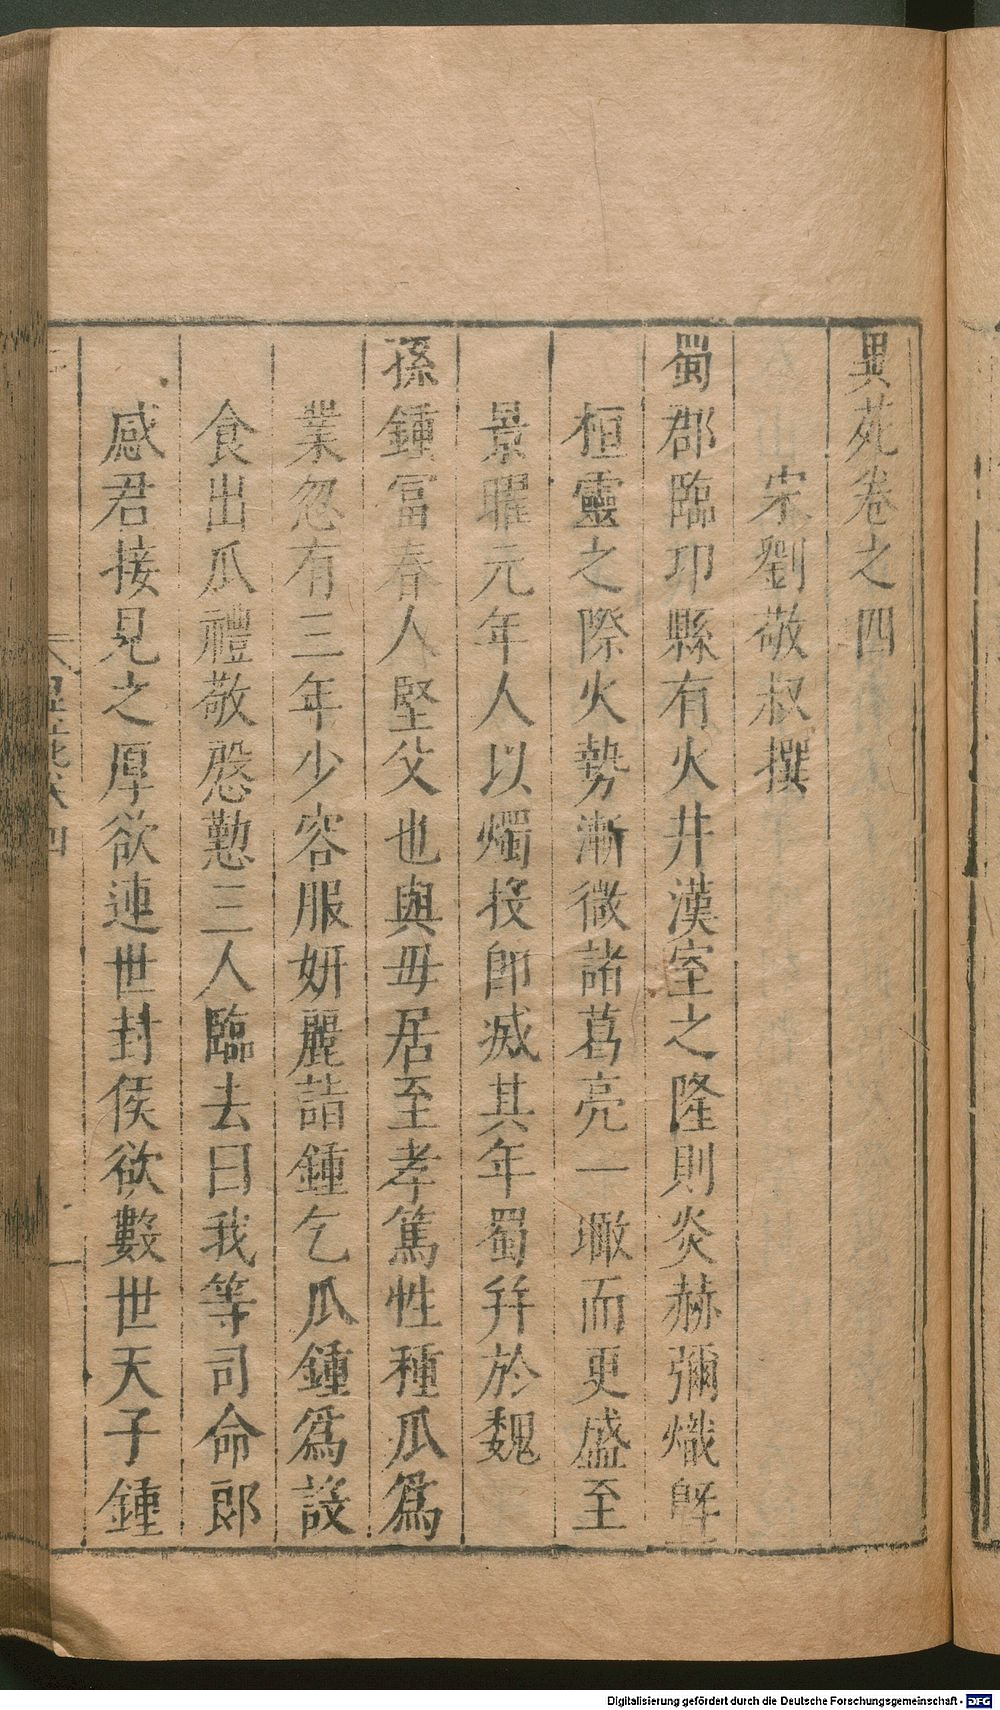 異苑卷之四
宋劉敬叔撰
蜀郡臨邛縣有火井漢室之隆則炎赫彌熾曁
桓靈之際火勢漸微諸葛亮一瞰而更盛至
景曜元年人以燭投卽滅其年蜀幷於魏
孫鍾冨春人堅父也與毋居至孝篤性種瓜爲
業忽有三年少容服妍麗詣鍾乞瓜鍾爲設
食出瓜禮敬慇懃三人臨去曰我等司命郎
感君接見之厚欲連世封侯欲數世天子鍾
異苑 四
一
Digitalisierung gefördert durch die Deutsche Forschungsgemeinschaft - DFG